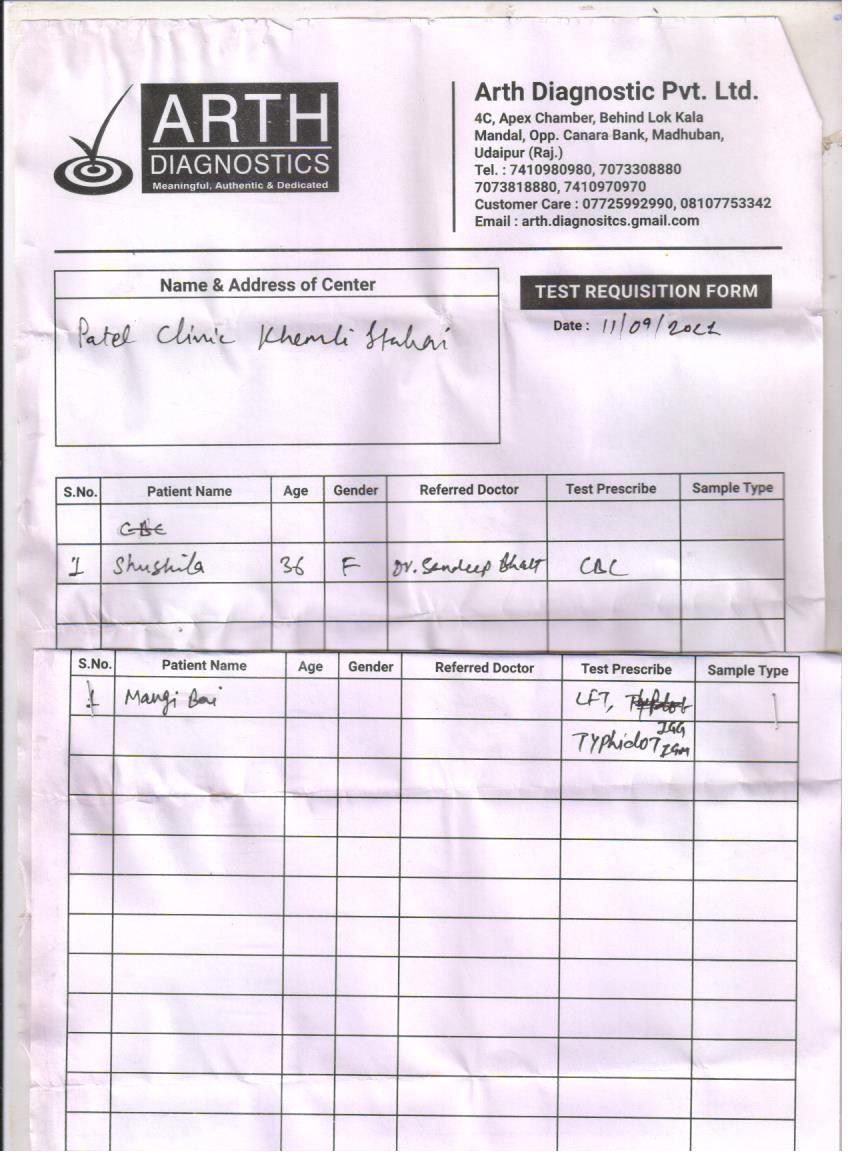 ARTH
DIAGNOSTICS
Meaningful, Authentic & Dedicated
Arth Diagnostic Pvt. Ltd.
4C, Apex Chamber, Behind Lok Kala
Mandal, Opp. Canara Bank, Madhuban,
Udaipur (Raj.)
Tel. : 7410980980, 7073308880
7073818880, 7410970970
Customer Care : 07725992990, 08107753342
Email : arth.diagnositcs.gmail.com
Name & Address of Center
Patel Clinic Khemli
TEST REQUISITION FORM
Date : 11/09/2022
S.No. Patient Name Age Gender Referred Doctor Test Prescribe Sample Type
CBC
1 Shushila 36 F Dr. Sandeep Bhatt CBC
S.No. Patient Name Age Gender Referred Doctor Test Prescribe Sample Type
1 Mangi Bai LFT,
TYPhidoT IGG
IGM